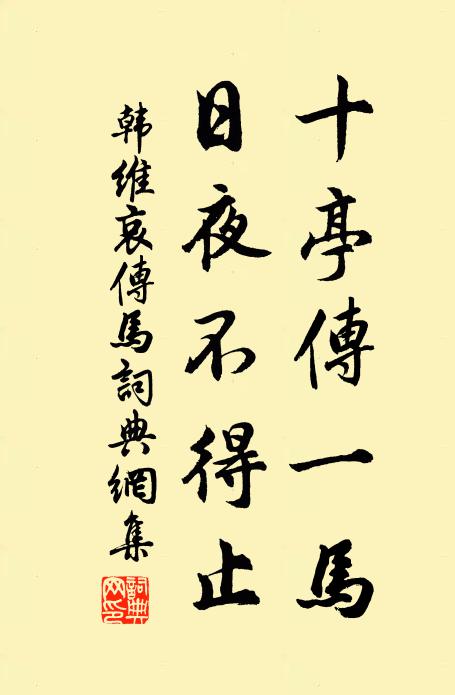 十亭傳一馬
日夜不得止
韩維哀傳馬詞典網集
詞典网印